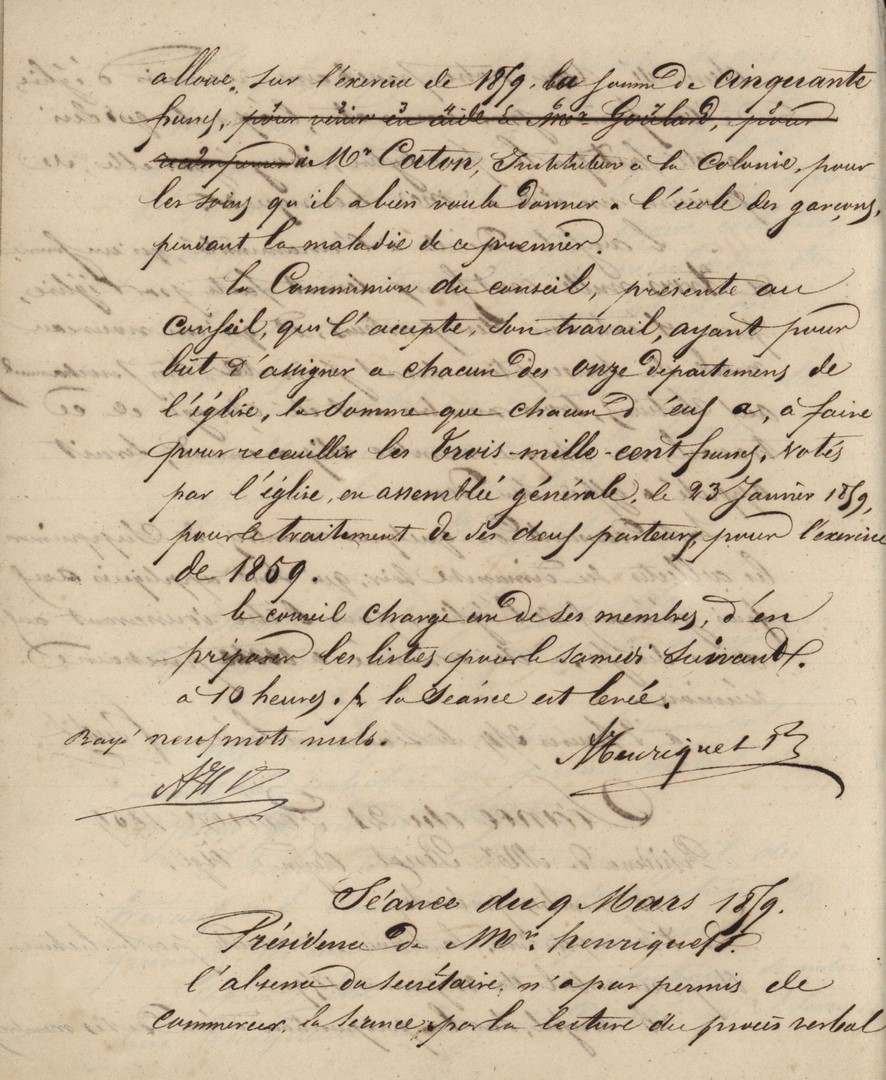 alloue, sur l'exercice de 1859, la somme de cinquante
francs, pour venir en aide à Mr. Goulard, pour
à Mr Caton, Instituteur à la Colonie, pour
les soins qu'il a bien voulu donner à l'école des garçons,
pendant la maladie de ce premier.
la Commission du conseil, présente au
Conseil, qui l'accepte, son travail, ayant pour
bût d'assigner a chacun des onze départemens de
l'église, la somme que chacun d'eux a, à faire
pour recueillir les trois-mille-cent francs, votés
par l'église, en assemblée générale, le 23 Janvier 1859,
pour le traitement de ses deux pasteurs, pour l'exercice
de 1859.
le conseil charge un de ses membres, d'en
préparer les listes pour le samedi suivant.
à 10 heures. la séance est levée.
Rayé neuf mots nuls.
AH
A Henriquet P
Séance du 9 Mars 1859.
Présidence de Mr. henriquet P.
l'absence du secrétaire, n'a pas permis de
commencer, la séance, par la lecture du procès verbal